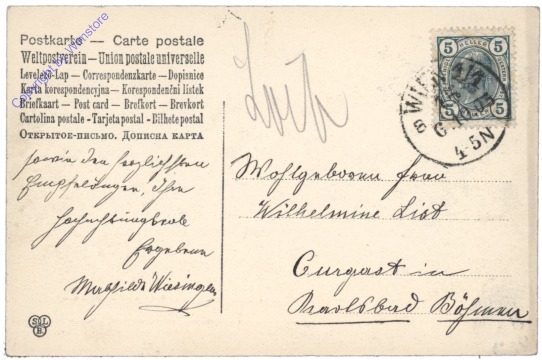 Postkarte — Carte postale
Weltpostverein — Union postale universelle
Levelező-Lap — Correspondenzkarte — Dopisnice
Karta korespondencyjna — Korespondenční lístek
Briefkaart — Post card — Brefkort — Brevkort
Cartolina postale - Tarjeta postal - Bilhete postal
Открытое-письмо. Дописна карта
sowie den herzlichsten
Empfehlungen, Ihre
hochachtungsvolle
Ergebene
Mathilde Wiesinger
StL
B.
5 HELLER 5
WIEN
4-5N
Wohlgeboren Frau
Wilhelmine List
Curgast in
Karlsbad Böhmen